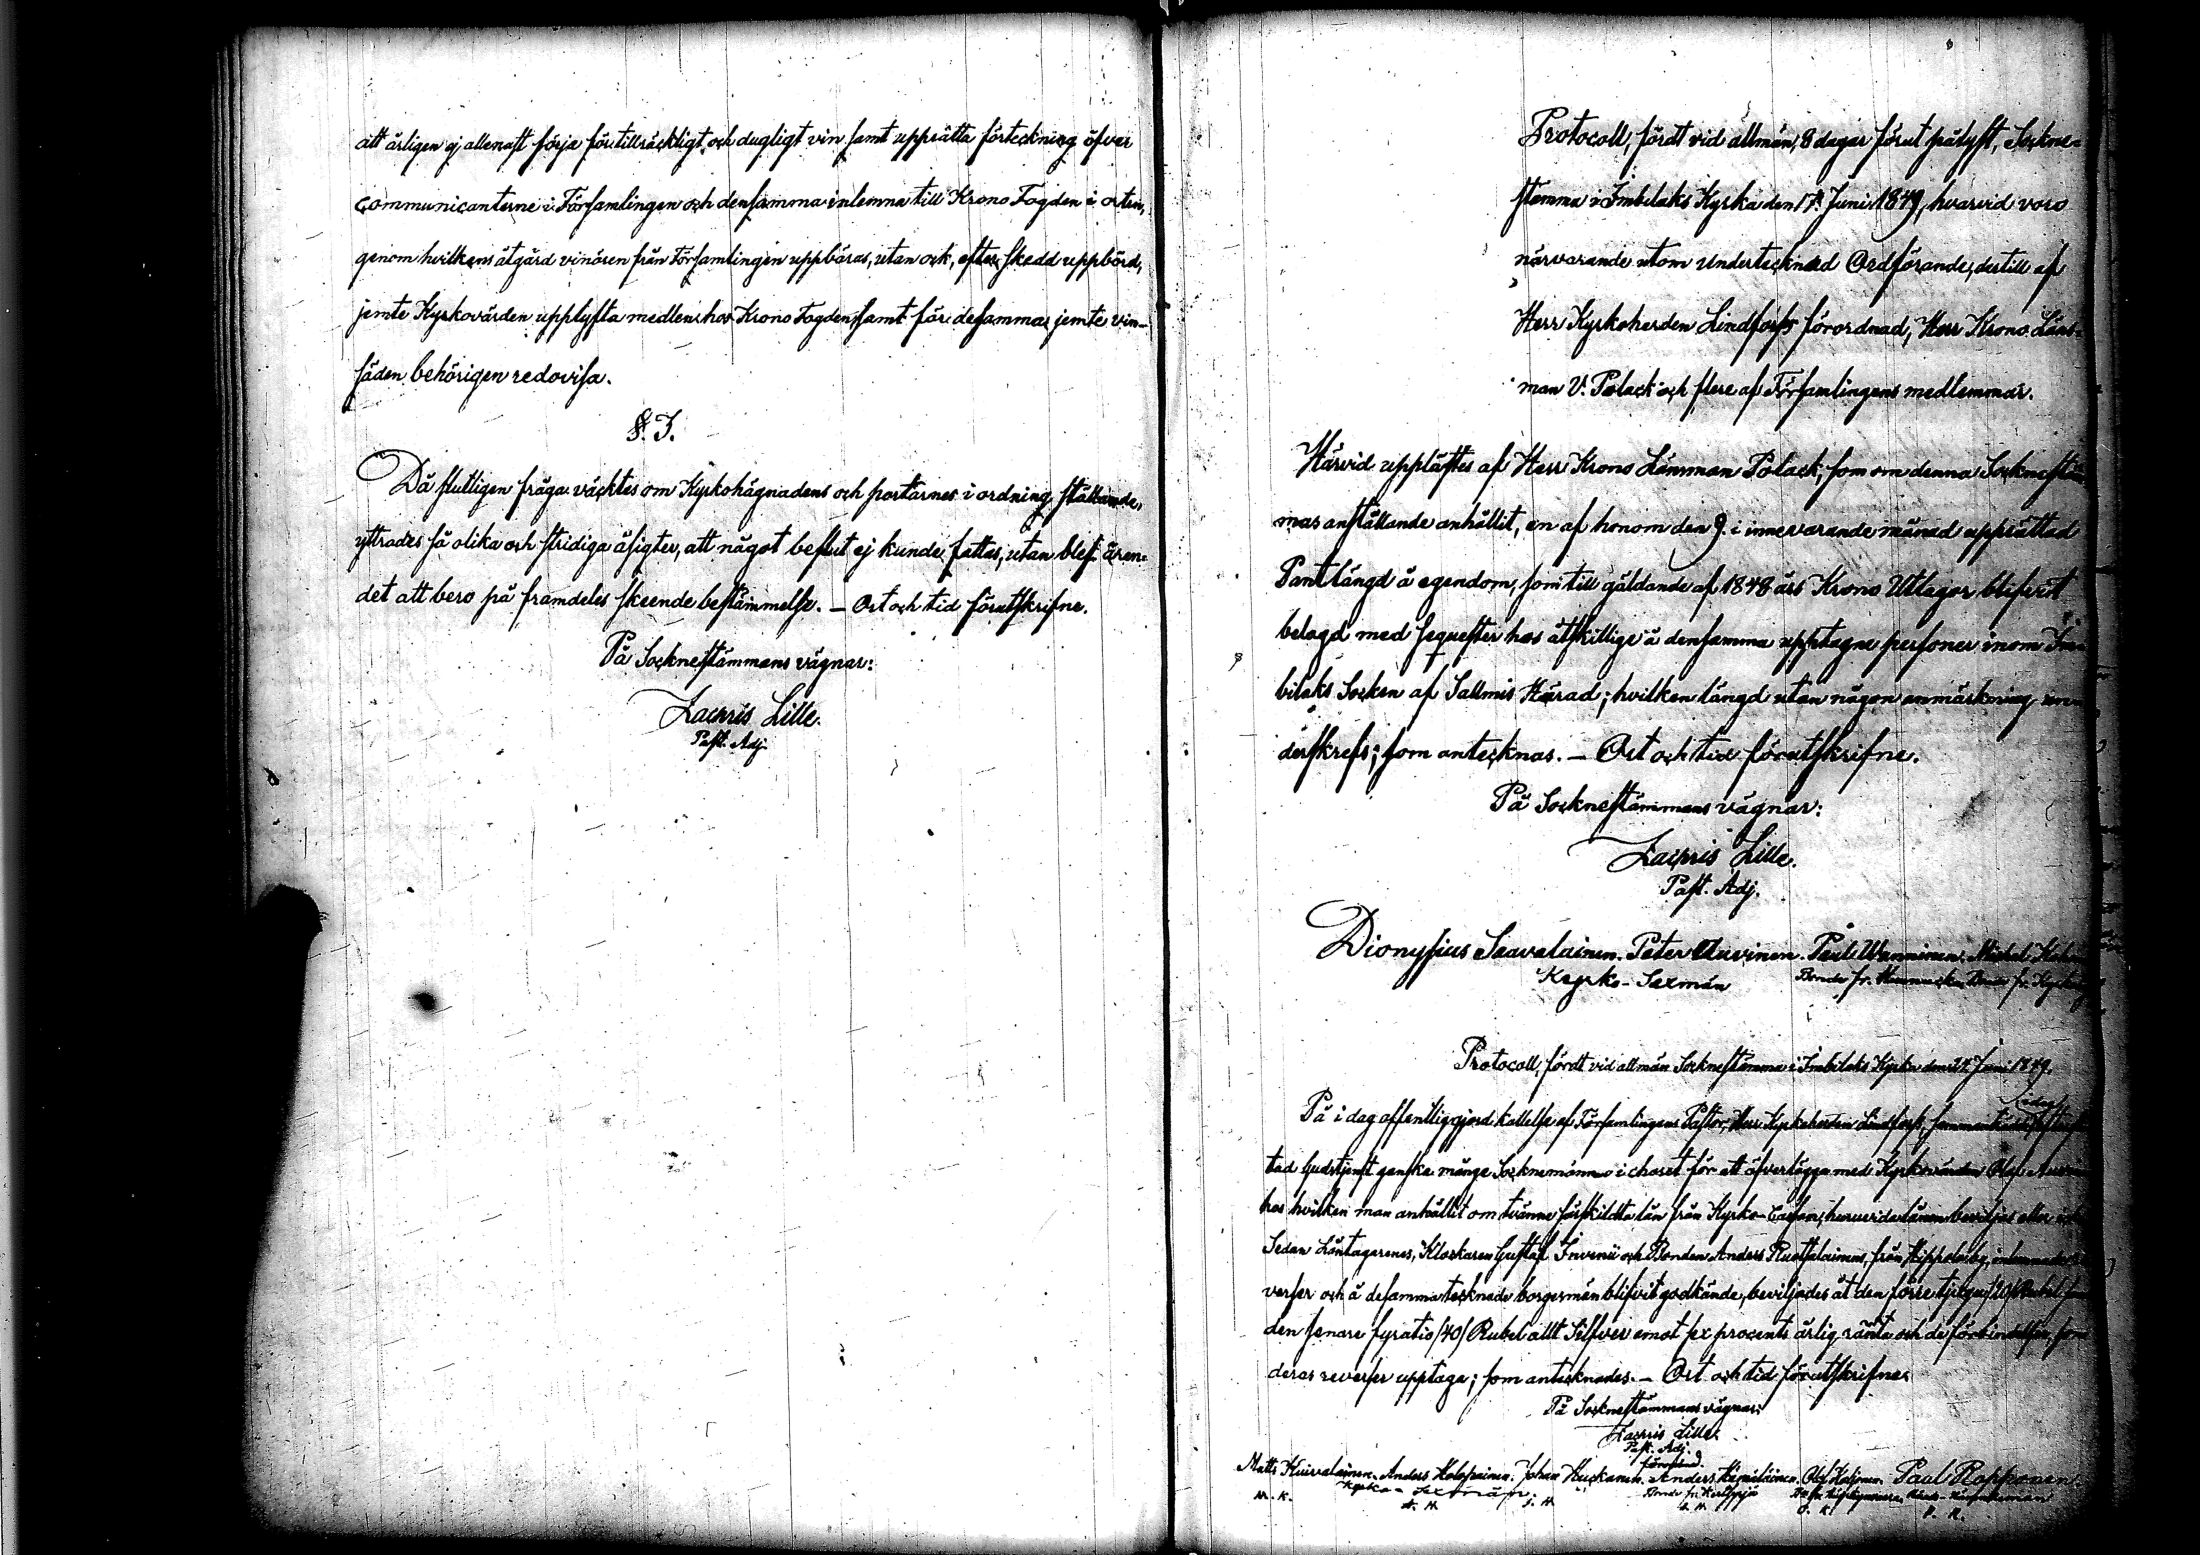 att årligen ej allenast sörja för tillräckligt och dugligt vin samt upprätta förteckning öfver
communicanterne i Församlingen och densamma inlemna till Krono Fogden i orten,
genom hvilkens åtgärd vinören från Församlingen uppbäras, utan ock, efter skedd uppbörd,
jemte Kyrkovärden upplyfta medlen hos Krono Fogden, samt för desamma jemte vin-
säden behörigen redovisa.
§. 3.
Då slutligen fråga väcktes om Kyrkohägnadens och portarnes i ordning ställande,
yttrades så olika och stridiga åsigter, att något beslut ej kunde fattas, utan blef ären-
det att bero på framdeles skeende bestämmelse. — Ort och tid förutskrifne.
På Socknestämmans vägnar:
Zachris Lille.
Past. Adj.
Protocoll, fördt vid allmän, 8 dagar förut pålyst, Sockne-
stämma i Imbilaks Kyrka den 17. Juni 1849, hvarvid voro
närvarande utom undertecknad Ordförande, dertill af
Herr Kyrkoherden Lindforss förordnad, Herr Krono Läns-
man V. Polack och flere af Församlingens medlemmar.
Härvid upplästes af Herr Krono Länsman Polack, som om denna Socknestäm-
mas anställande anhållit, en af honom den 9. i innevarande månad upprättad
Pantlängd å egendom, som till gäldande af 1848 års Krono Utlagor blifvit
belagd med sequester hos åtskillige å densamma upptagne personer inom Im-
bilaks Socken af Sallmis Härad; hvilken längd utan någon anmärkning un-
derskrefs; som antecknas. — Ort och tid förutskrifne.
På Socknestämmans vägnar:
Zachris Lille.
Past. Adj.
Dionysius Saavalainen. Peter Auvinen. Paul Wänninen. Michel
Kyrko-Sexmän Bonde fr. Bonde fr.
Protocoll, fördt vid allmän Socknestämma i Imbilaks Kyrka den 24 Juni 1849.
På i dag offentliggjord kallelse af Församlingens Pastor, Herr Kyrkoherden Lindforss,
tad Gudstjenst ganska månge Socknemän i choret för att öfverlägga med Kyrkovärden Olof
hos hvilken man anhållit om tvänne särskildta lån från Kyrko-Cassan, huruvida lånen beviljas eller
Sedan Låntagarenes, Klockaren Gustaf Invenii och Bonden Anders Ruotsalainens, från
verser och å desamma tecknade borgesmän blifvit godkände, beviljades åt den förre tjugu /20/ Rubel
den senare fyratio /40/ Rubel allt Silfver emot sex procents årlig ränta och de förbindelser, som
deras reverser upptaga; som antecknades. — Ort och tid förutskrifne.
På Socknestämmans vägnar:
Zachris Lille.
Past. Adj.
Matts Kuivalainen. Anders Holopainen. Johan Anders Hämäläinen. Olof Paul Ropponen.
Kyrko-Sexmän. Bonde fr.
M. K. A. H. J. H. A. H. O. K. P. R.